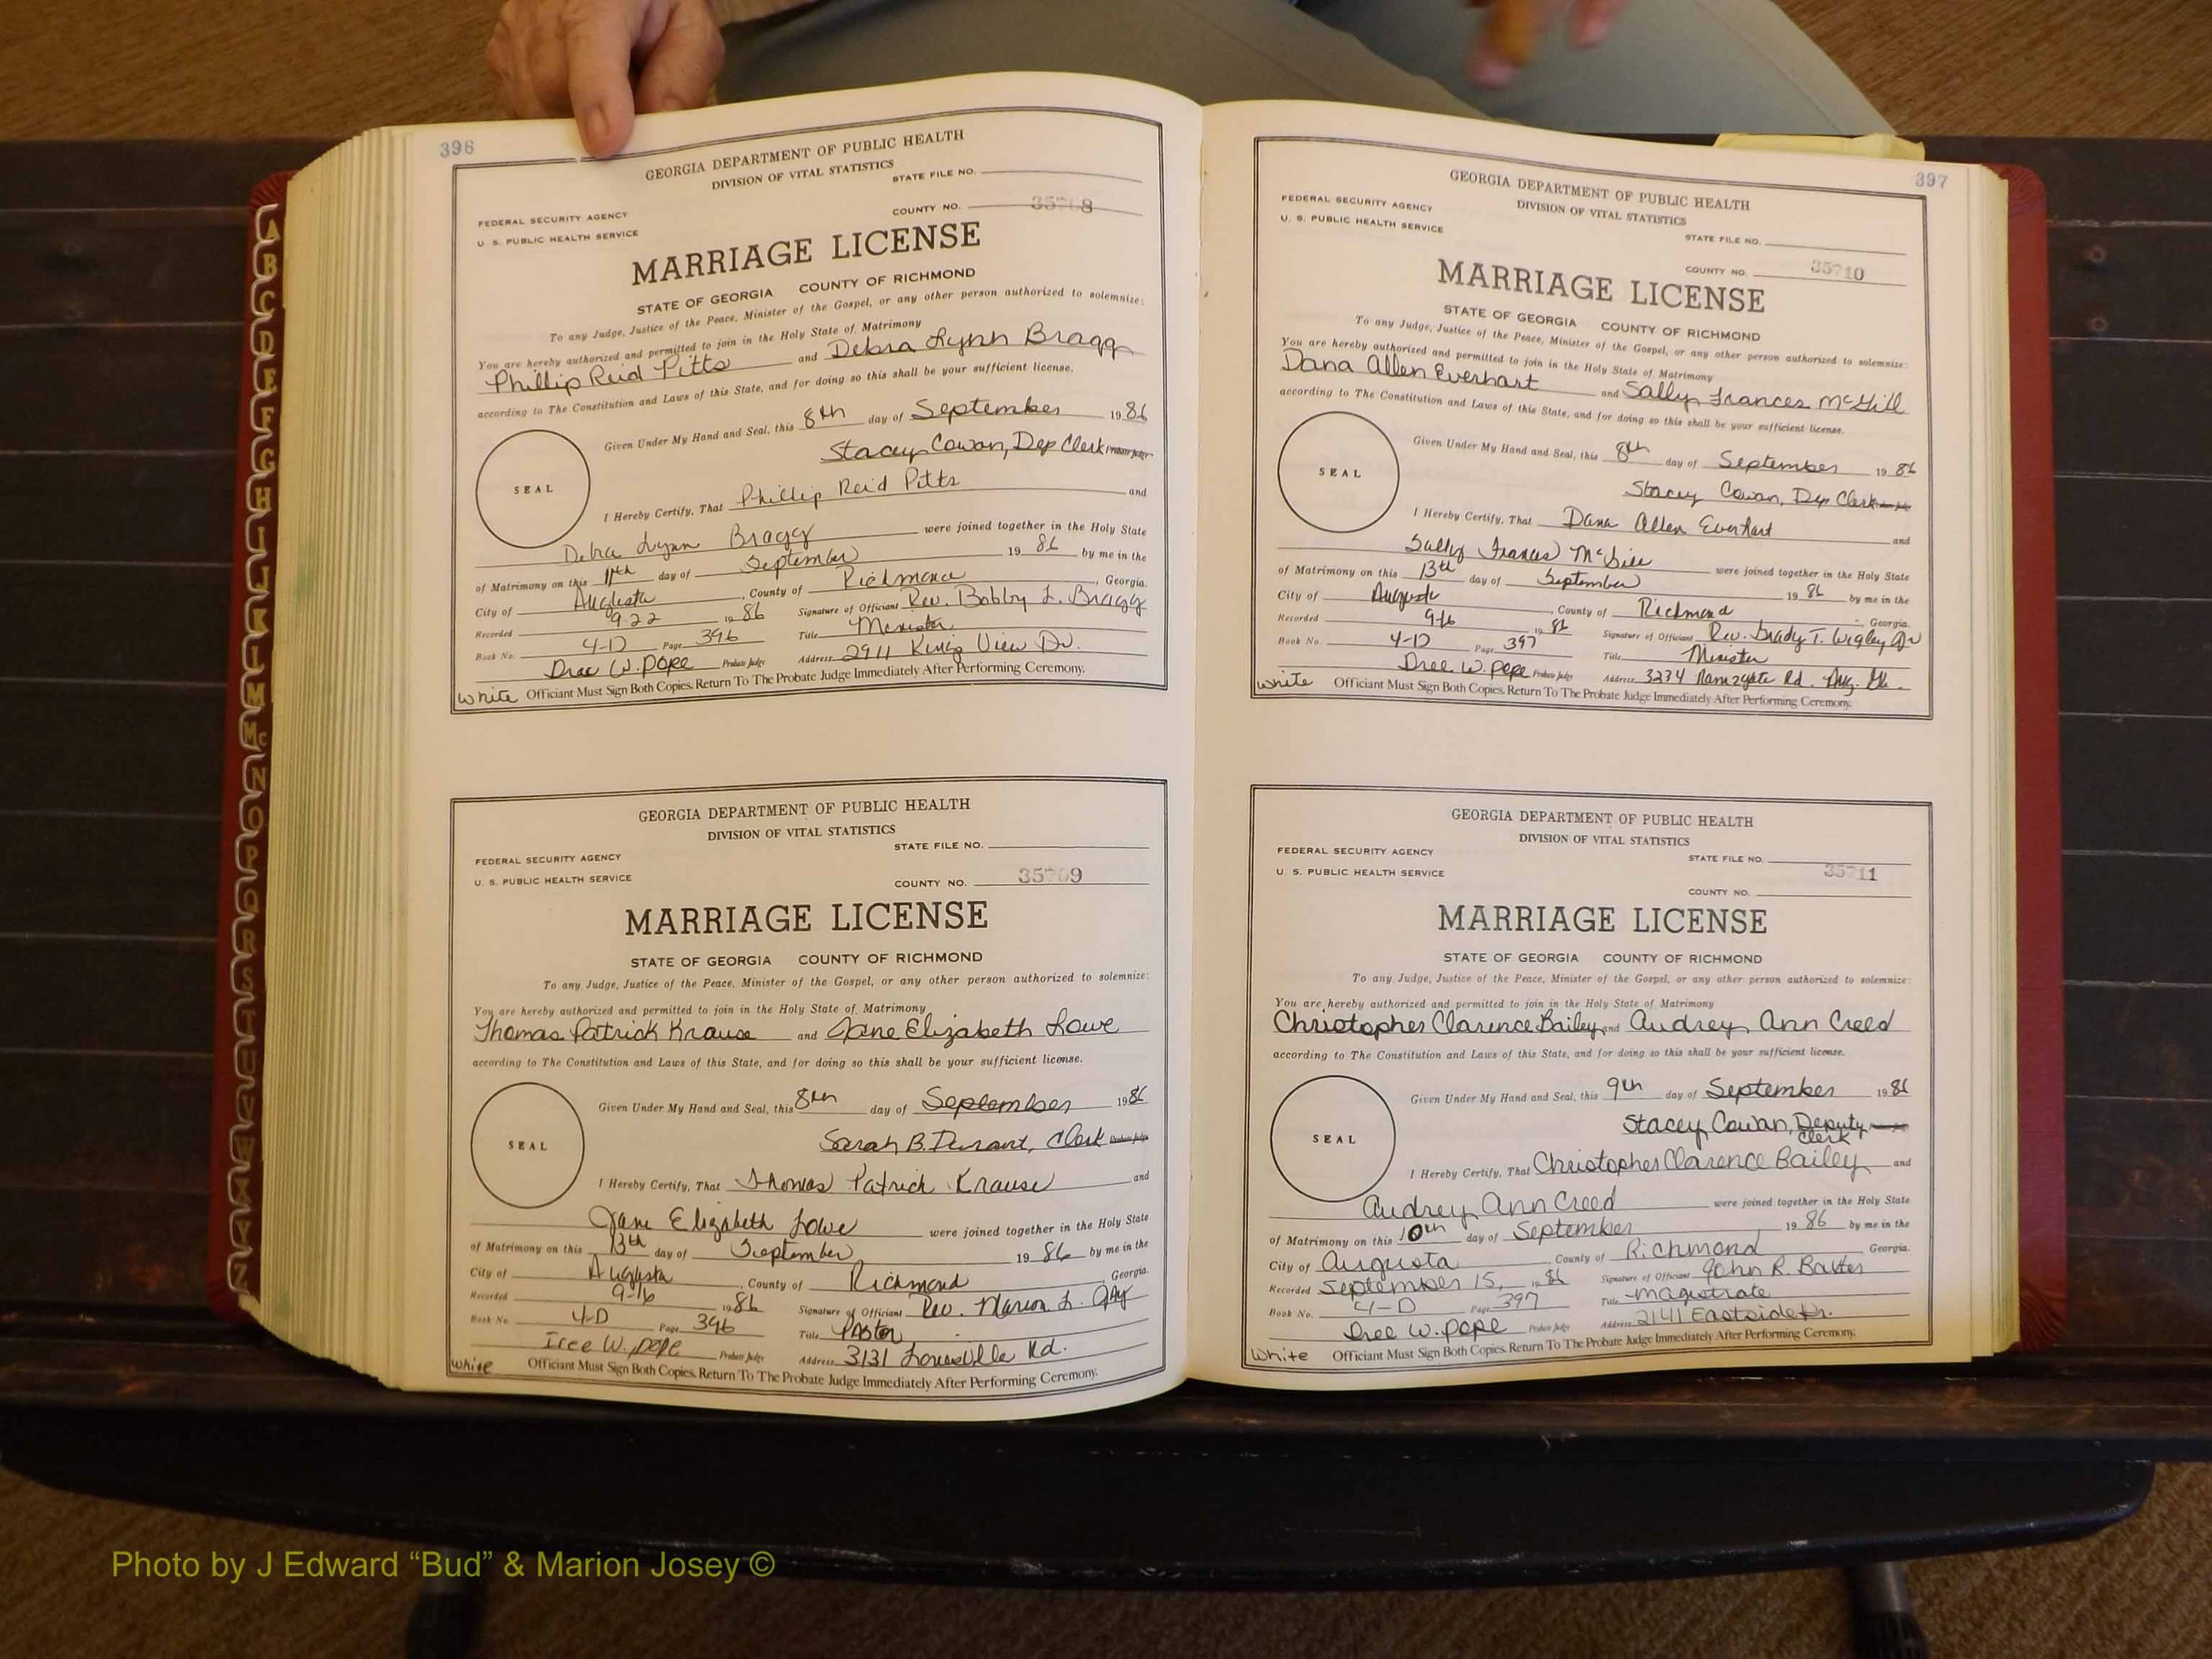 396
GEORGIA DEPARTMENT OF PUBLIC HEALTH
DIVISION OF VITAL STATISTICS
STATE FILE NO.
FEDERAL SECURITY AGENCY
COUNTY NO. 35708
U. S. PUBLIC HEALTH SERVICE
MARRIAGE LICENSE
STATE OF GEORGIA COUNTY OF RICHMOND
To any Judge, Justice of the Peace, Minister of the Gospel, or any other person authorized to solemnize:
You are hereby authorized and permitted to join in the Holy State of Matrimony
Phillip Reid Pitts and Debra Lynn Bragg
according to The Constitution and Laws of this State, and for doing so this shall be your sufficient license.
Given Under My Hand and Seal, this 8th day of September 1986
Stacey Cowan, Dep Clerk Probate Judge
SEAL
I Hereby Certify, That Phillip Reid Pitts and
Debra Lynn Bragg were joined together in the Holy State
of Matrimony on this 11th day of September 1986 by me in the
City of Augusta, County of Richmond, Georgia.
Recorded 9-22 1986 Signature of Officiant Rev. Bobby L. Bragg
Book No. 4-D Page 396 Title Minister
Dree W. Pope Probate Judge Address 2911 King View Dr.
White Officiant Must Sign Both Copies. Return To The Probate Judge Immediately After Performing Ceremony.
GEORGIA DEPARTMENT OF PUBLIC HEALTH
DIVISION OF VITAL STATISTICS
STATE FILE NO.
FEDERAL SECURITY AGENCY
U. S. PUBLIC HEALTH SERVICE
COUNTY NO. 35709
MARRIAGE LICENSE
STATE OF GEORGIA COUNTY OF RICHMOND
To any Judge, Justice of the Peace, Minister of the Gospel, or any other person authorized to solemnize:
You are hereby authorized and permitted to join in the Holy State of Matrimony
Thomas Patrick Krause and Jane Elizabeth Lowe
according to The Constitution and Laws of this State, and for doing so this shall be your sufficient license.
Given Under My Hand and Seal, this 8th day of September 1986
Sarah B. Durant, Clerk Probate Judge
SEAL
I Hereby Certify, That Thomas Patrick Krause and
Jane Elizabeth Lowe were joined together in the Holy State
of Matrimony on this 13th day of September 1986 by me in the
City of Augusta, County of Richmond, Georgia.
Recorded 9-16 1986 Signature of Officiant Rev. Marion L. Gay
Book No. 4-D Page 396 Title Pastor
W. Pope Probate Judge Address 3131 Louisville Rd.
White Officiant Must Sign Both Copies. Return To The Probate Judge Immediately After Performing Ceremony.
397
GEORGIA DEPARTMENT OF PUBLIC HEALTH
DIVISION OF VITAL STATISTICS
FEDERAL SECURITY AGENCY
U. S. PUBLIC HEALTH SERVICE
STATE FILE NO.
COUNTY NO. 35710
MARRIAGE LICENSE
STATE OF GEORGIA COUNTY OF RICHMOND
To any Judge, Justice of the Peace, Minister of the Gospel, or any other person authorized to solemnize:
You are hereby authorized and permitted to join in the Holy State of Matrimony
Dana Allen Everhart and Sally Frances McGill
according to The Constitution and Laws of this State, and for doing so this shall be your sufficient license.
Given Under My Hand and Seal, this 8th day of September 1986
Stacey Cowan, Dep Clerk
SEAL
I Hereby Certify, That Dana Allen Everhart and
Sally Frances McGill were joined together in the Holy State
of Matrimony on this 13th day of September 1986 by me in the
City of Augusta, County of Richmond, Georgia.
Recorded 9-16 1986 Signature of Officiant Rev. Grady T. Wigley, Jr
Book No. 4-D Page 397 Title Minister
Dree W. Pope Probate Judge Address 3234 Ramsgate Rd. Aug. Ga.
White Officiant Must Sign Both Copies. Return To The Probate Judge Immediately After Performing Ceremony.
GEORGIA DEPARTMENT OF PUBLIC HEALTH
DIVISION OF VITAL STATISTICS
FEDERAL SECURITY AGENCY
STATE FILE NO.
U. S. PUBLIC HEALTH SERVICE
35711
COUNTY NO.
MARRIAGE LICENSE
STATE OF GEORGIA COUNTY OF RICHMOND
To any Judge, Justice of the Peace, Minister of the Gospel, or any other person authorized to solemnize:
You are hereby authorized and permitted to join in the Holy State of Matrimony
Christopher Clarence Bailey and Audrey Ann Creed
according to The Constitution and Laws of this State, and for doing so this shall be your sufficient license.
Given Under My Hand and Seal, this 9th day of September 1986
Stacey Cowan, Deputy
Clerk
SEAL
I Hereby Certify, That Christopher Clarence Bailey and
Audrey Ann Creed were joined together in the Holy State
of Matrimony on this 10th day of September 1986 by me in the
City of Augusta, County of Richmond Georgia.
Recorded September 15, 1986 Signature of Officiant John R. Baxter
Book No. 4-D Page 397 Title Magistrate
Dree W. Pope Probate Judge Address 2141 Eastside Dr.
White Officiant Must Sign Both Copies. Return To The Probate Judge Immediately After Performing Ceremony.
A
B
C
D
E
F
G
H
I
J
K
L
M
Mc
N
O
P
Q
R
S
T
U
V
W
X
Y
Z
Photo by J Edward “Bud” & Marion Josey ©